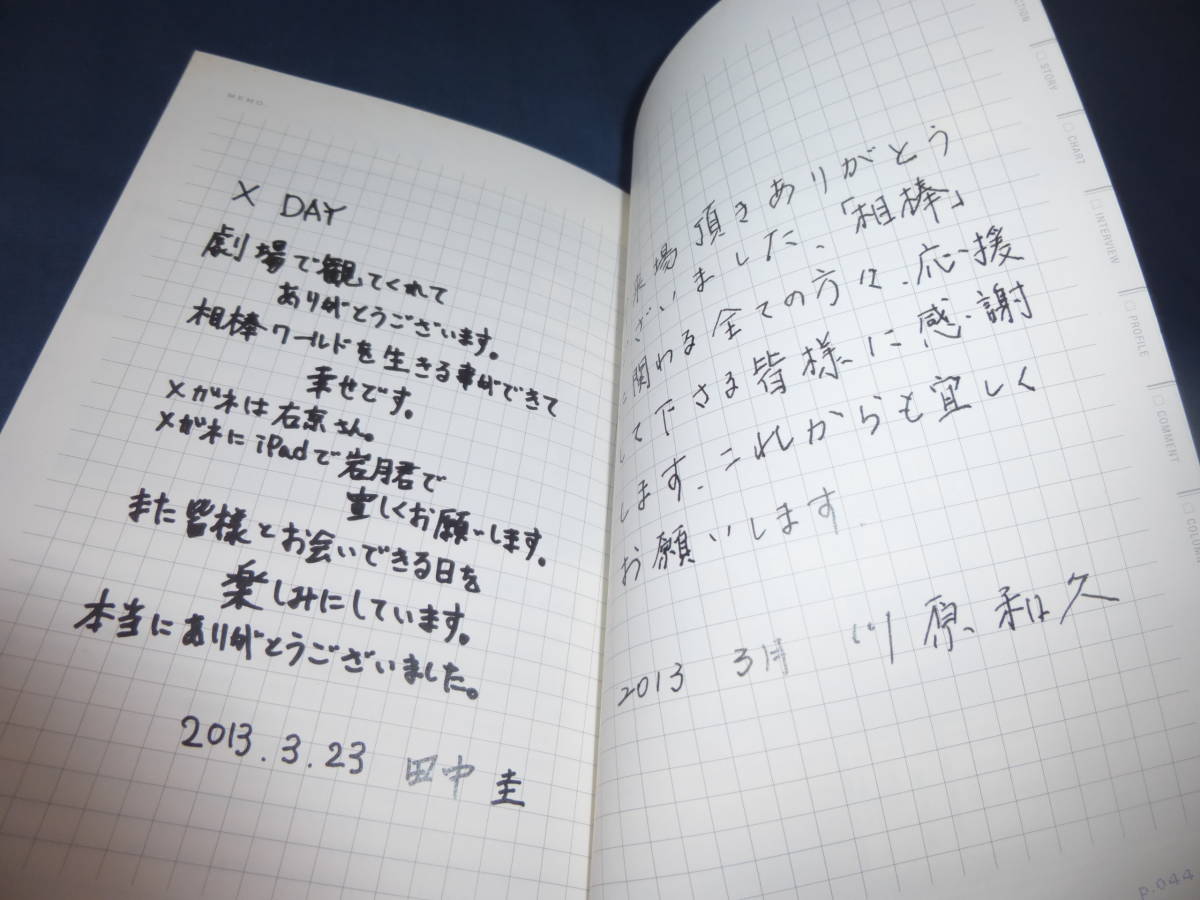 MEMO.
X DAY
劇場で観てくれて
ありがとうございます。
相棒ワールドを生きる事ができて
幸せです。
メガネは右京さん。
メガネにiPadで岩月君で
宜しくお願いします。
また皆様とお会いできる日を
楽しみにしています。
本当にありがとうございました。
2013.3.23 田中 圭
来場頂きありがとう
ざいました、「相棒」
関わる全ての方々、応援
して下さる皆様に感謝
します、これからも宜しく
お願いします.
2013 3月 川原和久
STORY
CHART
INTERVIEW
PROFILE
COMMENT
COLUMN
P.044